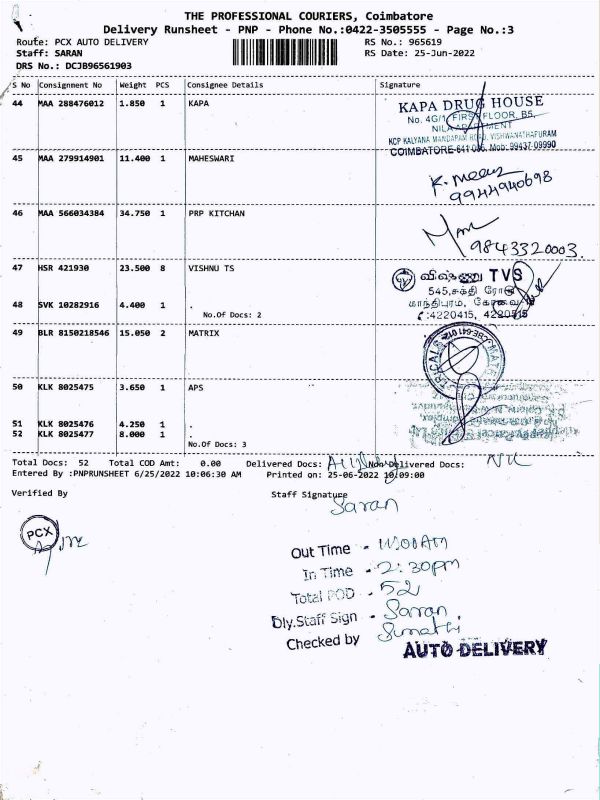 THE PROFESSIONAL COURIERS, Coimbatore
Delivery Runsheet - PNP - Phone No.:0422-3505555 - Page No.:3
Route: PCX AUTO DELIVERY
RS No.: 965619
Staff: SARAN
RS Date: 25-Jun-2022
DRS No.: DCJB96561903
S No Consignment No Weight PCS Consignee Details Signature
44 MAA 288476012 1.850 1 KAPA
KAPA DRUG HOUSE
No. 4G/1 FIRST FLOOR, B5,
NILA APARTMENT
KCP KALYANA MANDAPAM ROAD, VISHWANATHAPURAM
COIMBATORE-641 Mob: 99437-09990
45 MAA 279914901 11.400 1 MAHESWARI
K. Meena
9944940698
46 MAA 566034384 34.750 1 PRP KITCHAN
9843320003.
47 HSR 421930 23.500 8 VISHNU TS
விஷ்ணு TVS
545, சக்தி ரோடு
காந்திபுரம், கோவை
✆:4220415, 4220515
48 SVK 10282916 4.400 1 .
No.Of Docs: 2
49 BLR 8150218546 15.050 2 MATRIX
50 KLK 8025475 3.650 1 APS
51 KLK 8025476 4.250 1 .
52 KLK 8025477 8.000 1 .
No.Of Docs: 3
Total Docs: 52 Total COD Amt: 0.00 Delivered Docs: Non Delivered Docs: Nil
Entered By :PNPRUNSHEET 6/25/2022 10:06:30 AM Printed on: 25-06-2022 10:09:00
Verified By Staff Signature
Saran
PCX
Out Time - 11:00AM
In Time - 2:30pm
Total POD - 52
Dly.Staff Sign - Saran
Checked by Sumathi
AUTO DELIVERY